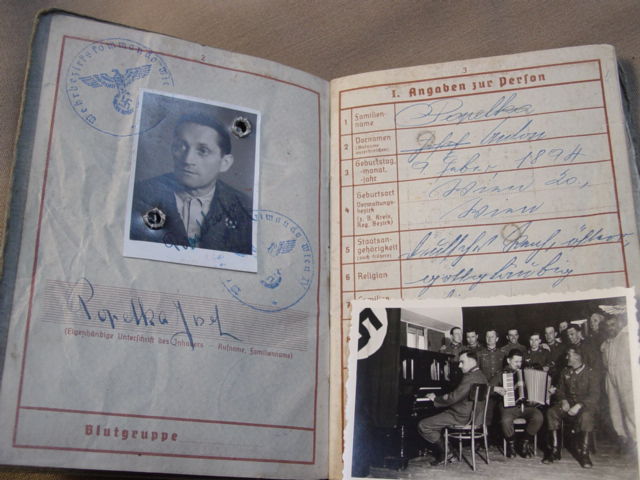 2
Wehrbezirkskommando Wien
Popelka Josef
(Eigenhändige Unterschrift des Inhabers – Rufname, Familienname)
Blutgruppe
3
I. Angaben zur Person
1 Familien-name Popelka
2 Vornamen (Rufname unterstreichen) Josef Anton
3 Geburtstag, -monat, -jahr 1894
4 Geburtsort Verwaltungsbezirk (z. B. Kreis, Reg. Bezirk) Wien 20,
Wien
5 Staatsangehörigkeit (auch frühere)
6 Religion gottgläubig
7